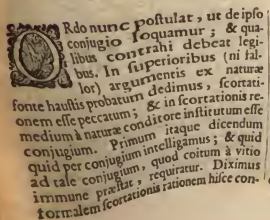 ORdo nunc postulat, ut de ipso
conjugio loquamur; & qua-
libus contrahi debeat legi-
bus. In superioribus (ni fal-
lor) argumentis ex naturæ
fonte haustis probatum dedimus, scortati-
onem esse peccatum; & in scortationis re-
medium à naturæ conditore institutum esse
conjugium. Primum itaque dicendum
quid per conjugium intelligamus; & quid
ad tale conjugium, quod coitum à vitio
immune præstat, requiratur. Diximus
formalem scortationis rationem hisce con-